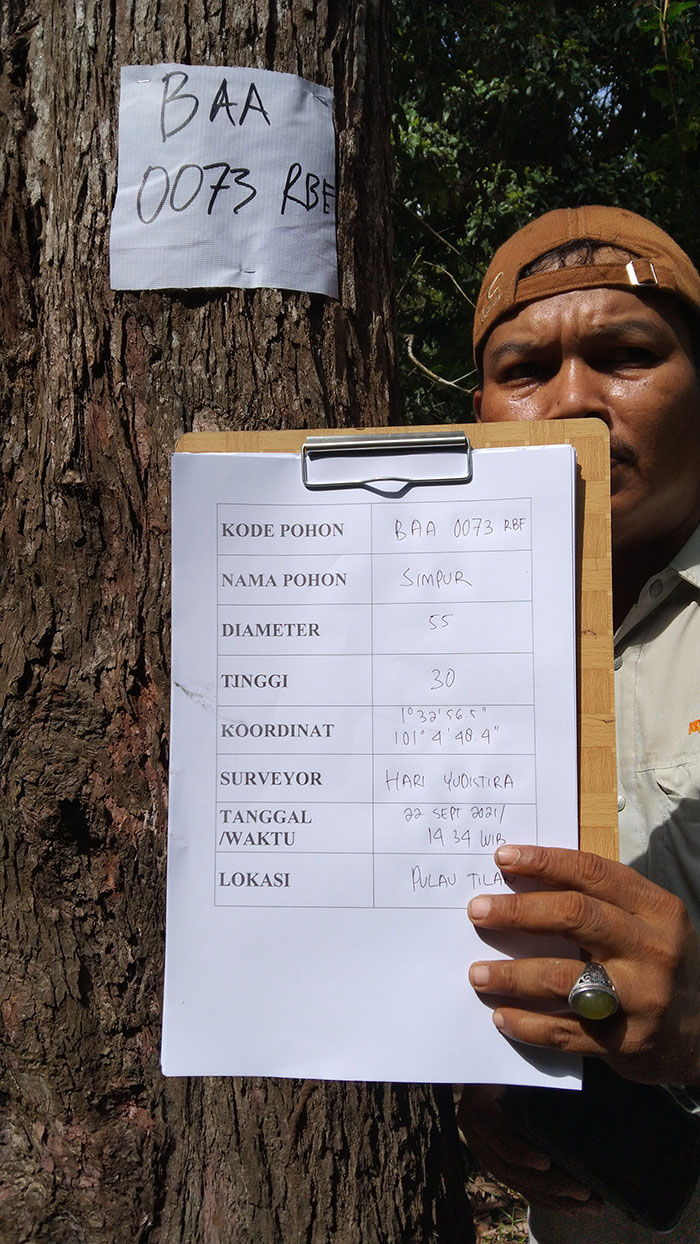 BAA
0073 RBF
KODE POHON BAA 0073 RBF
NAMA POHON SIMPUR
DIAMETER 55
TINGGI 30
KOORDINAT 1° 32' 56.5"
101° 4' 48.4"
SURVEYOR HARI YUDISTIRA
TANGGAL /WAKTU 22 SEPT 2021/
14 34 WIB
LOKASI PULAU TILAN